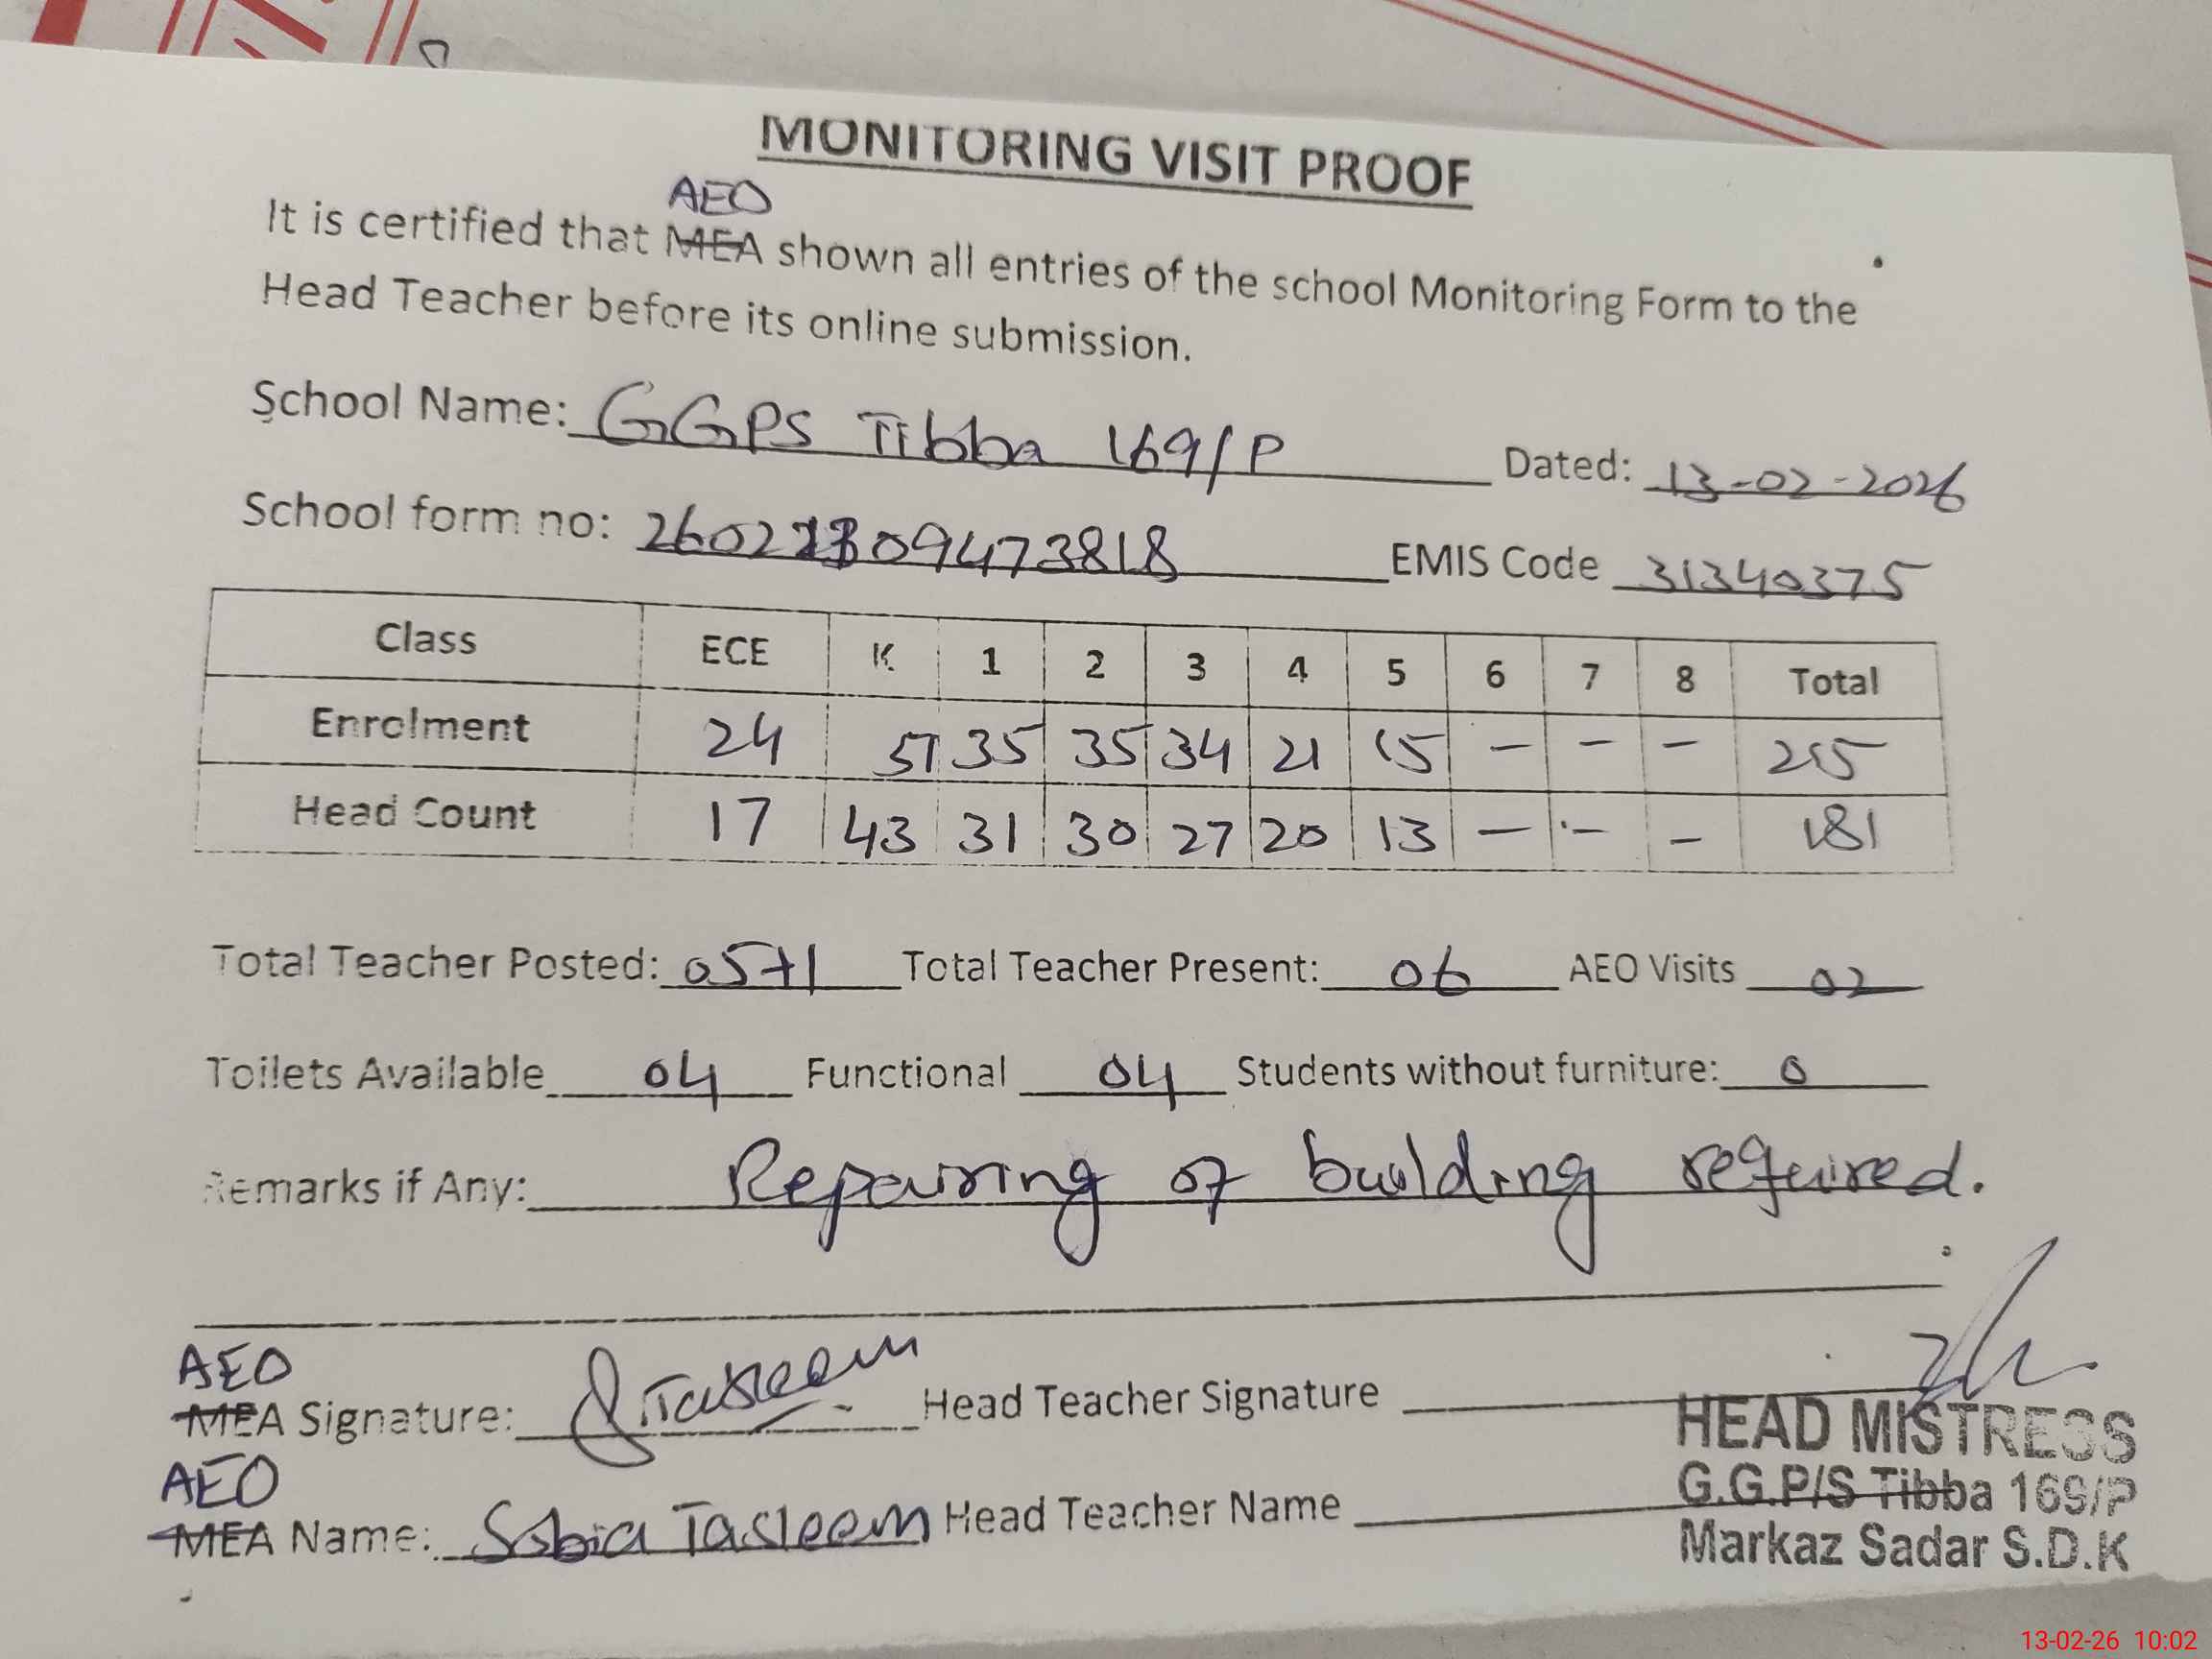 MONITORING VISIT PROOF
AEO
It is certified that MEA shown all entries of the school Monitoring Form to the
Head Teacher before its online submission.
School Name: GGPS Tibba 169/P Dated: 13-02-2026
School form no: EMIS Code 31340375
Class ECE K 1 2 3 4 5 6 7 8 Total
Enrolment 24 51 35 35 34 21 15 - - - 215
Head Count 17 43 31 30 27 20 13 - - - 181
Total Teacher Posted: 05+1 Total Teacher Present: 06 AEO Visits 02
Toilets Available 04 Functional 04 Students without furniture: 0
Remarks if Any: Repairing of building required.
AEO
MEA Signature: Tasleem Head Teacher Signature
HEAD MISTRESS
AEO
G.G.P/S Tibba 169/P
MEA Name: Sobia Tasleem Head Teacher Name
Markaz Sadar S.D.K
13-02-26 10:02